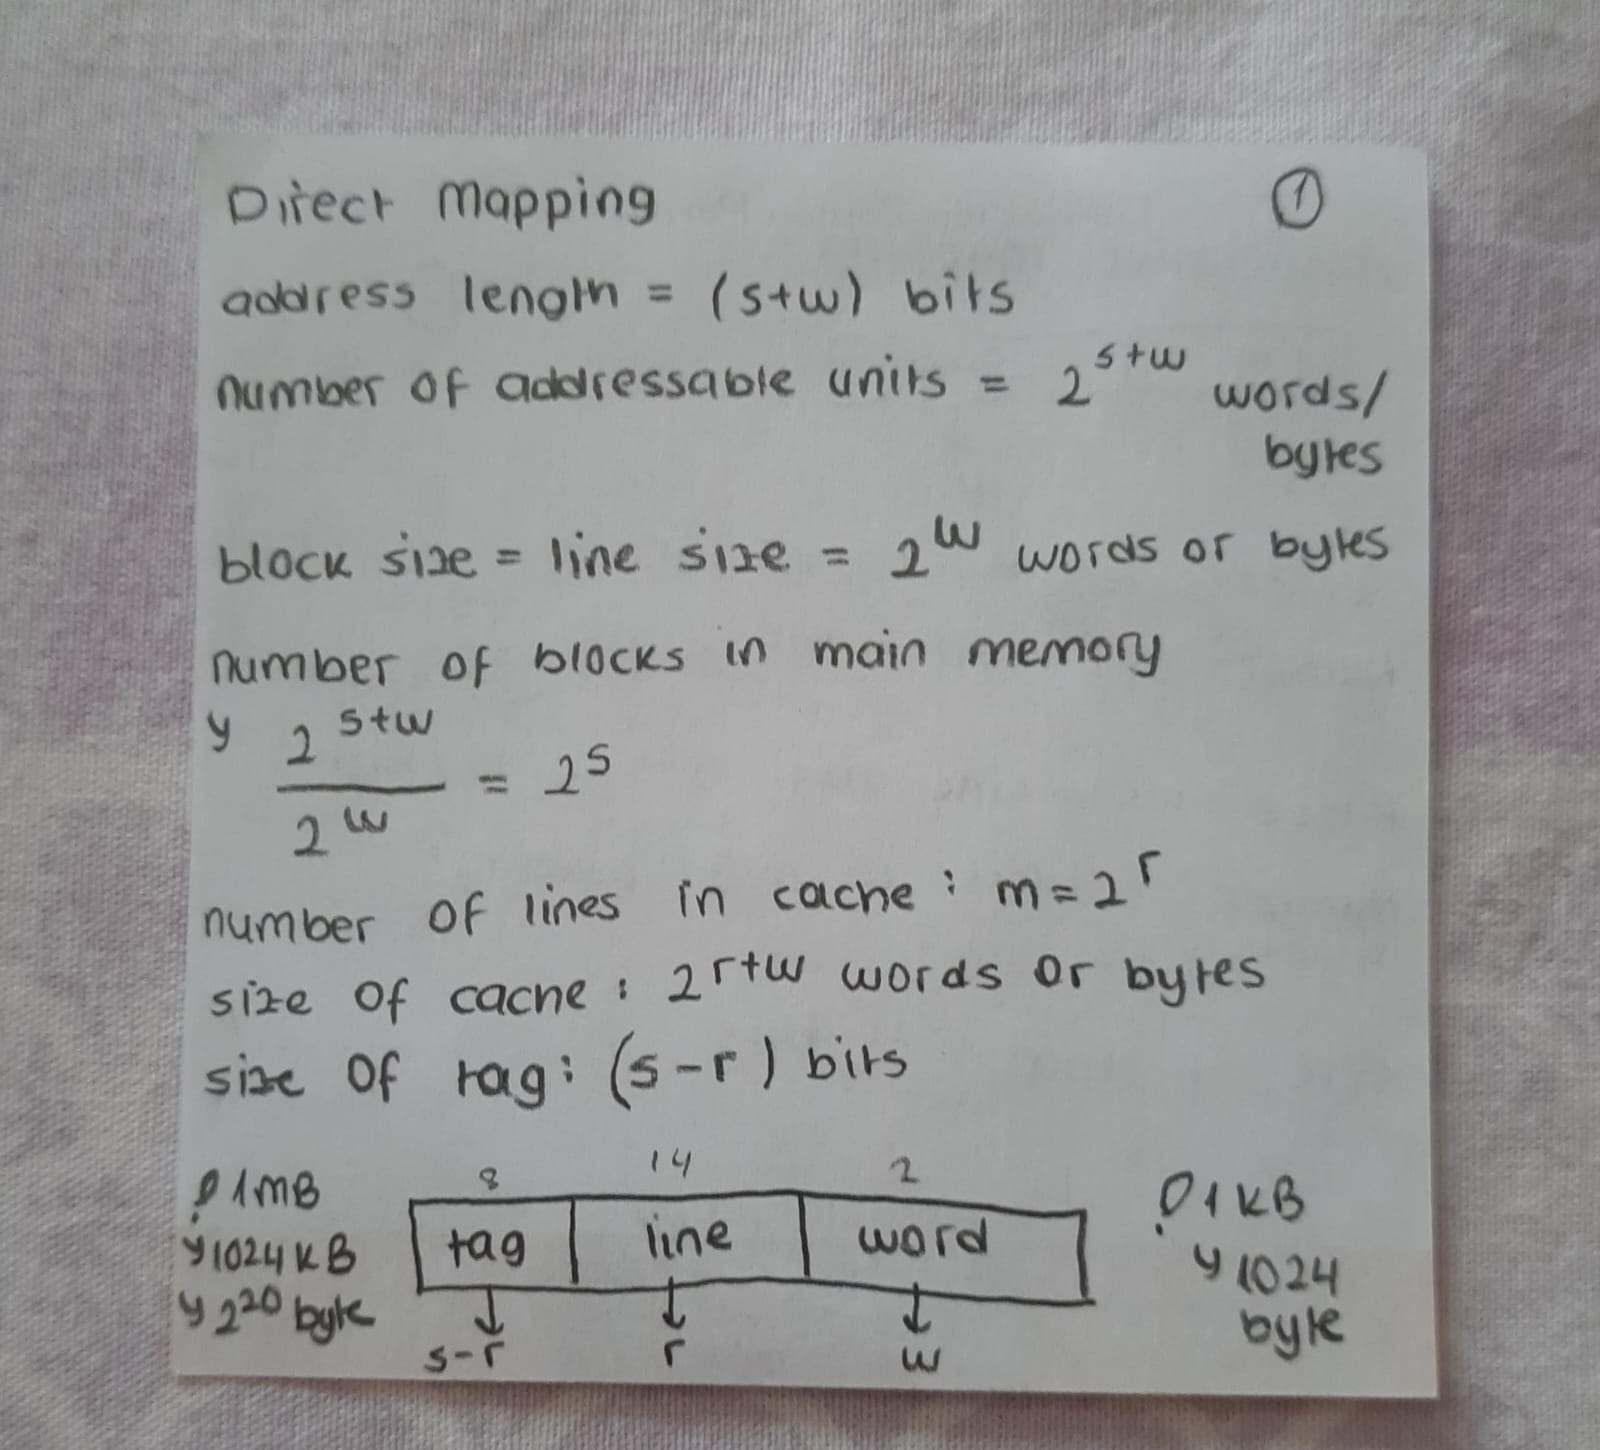 Direct Mapping ①
address length = (s+w) bits
number of addressable units = 2^s+w words/
bytes
block size = line size = 2^w words or bytes
number of blocks in main memory
↳ 2^s+w / 2^w = 2^s
number of lines in cache : m = 2^r
size of cache : 2^r+w words or bytes
size of tag : (s-r) bits
8 14 2
tag line word
s-r r w
1MB
↳ 1024 KB
↳ 2^20 byte
1 KB
↳ 1024
byte